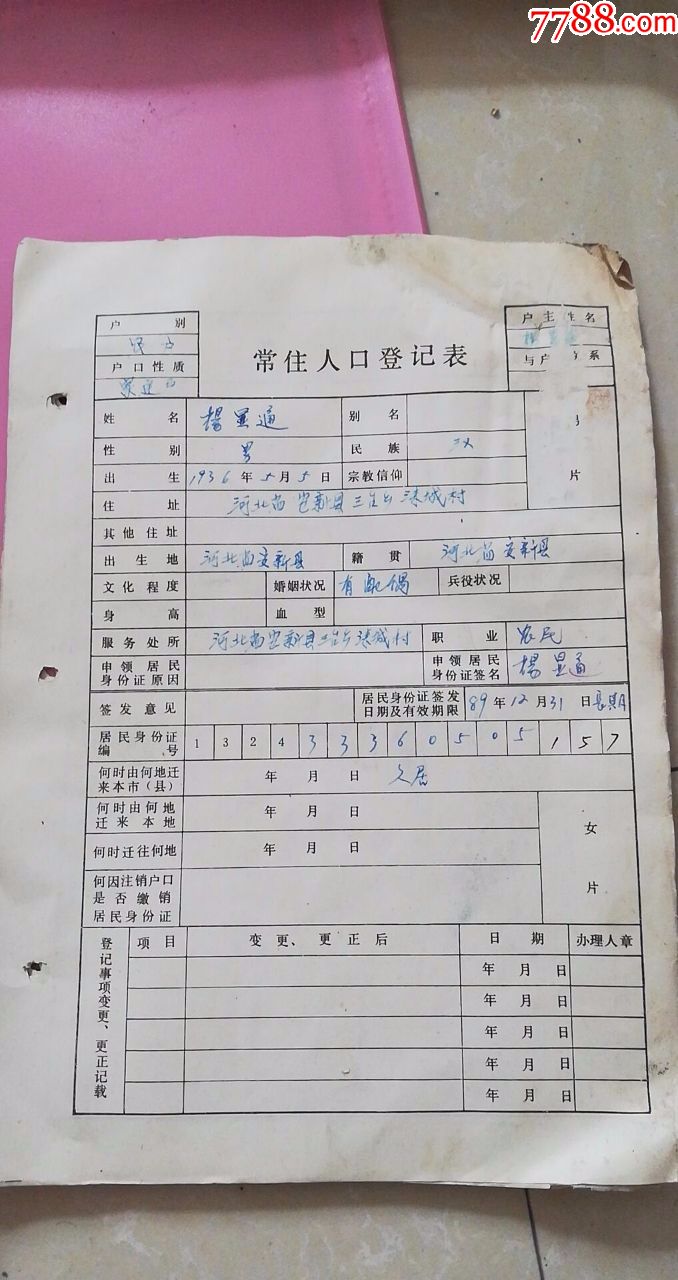 7788.com
户 别
户口性质
常住人口登记表
户主姓名
与户 系
姓 名 楊显通 别 名
性 别 男 民 族 汉
出 生 1936年5月5日 宗教信仰
片
住 址 河北省安新县三台乡 村
其他住址
出生地 河北省安新县 籍 贯 河北省安新县
文化程度 婚姻状况 有配偶 兵役状况
身 高 血 型
服务处所 河北省安新县三台乡 村 职 业 农民
申领居民身份证原因 申领居民身份证签名 楊显通
签发意见 居民身份证签发日期及有效期限 89年12月31日长期
居民身份证编号 1 3 2 4 3 3 3 6 0 5 0 5 1 5 7
何时由何地迁来本市(县) 年 月 日 久居
何时由何地迁来本地 年 月 日
何时迁往何地 年 月 日
女
片
何因注销户口是否缴销居民身份证
登记事项变更、更正记载
项目 变更、更正后 日 期 办理人章
年 月 日
年 月 日
年 月 日
年 月 日
年 月 日